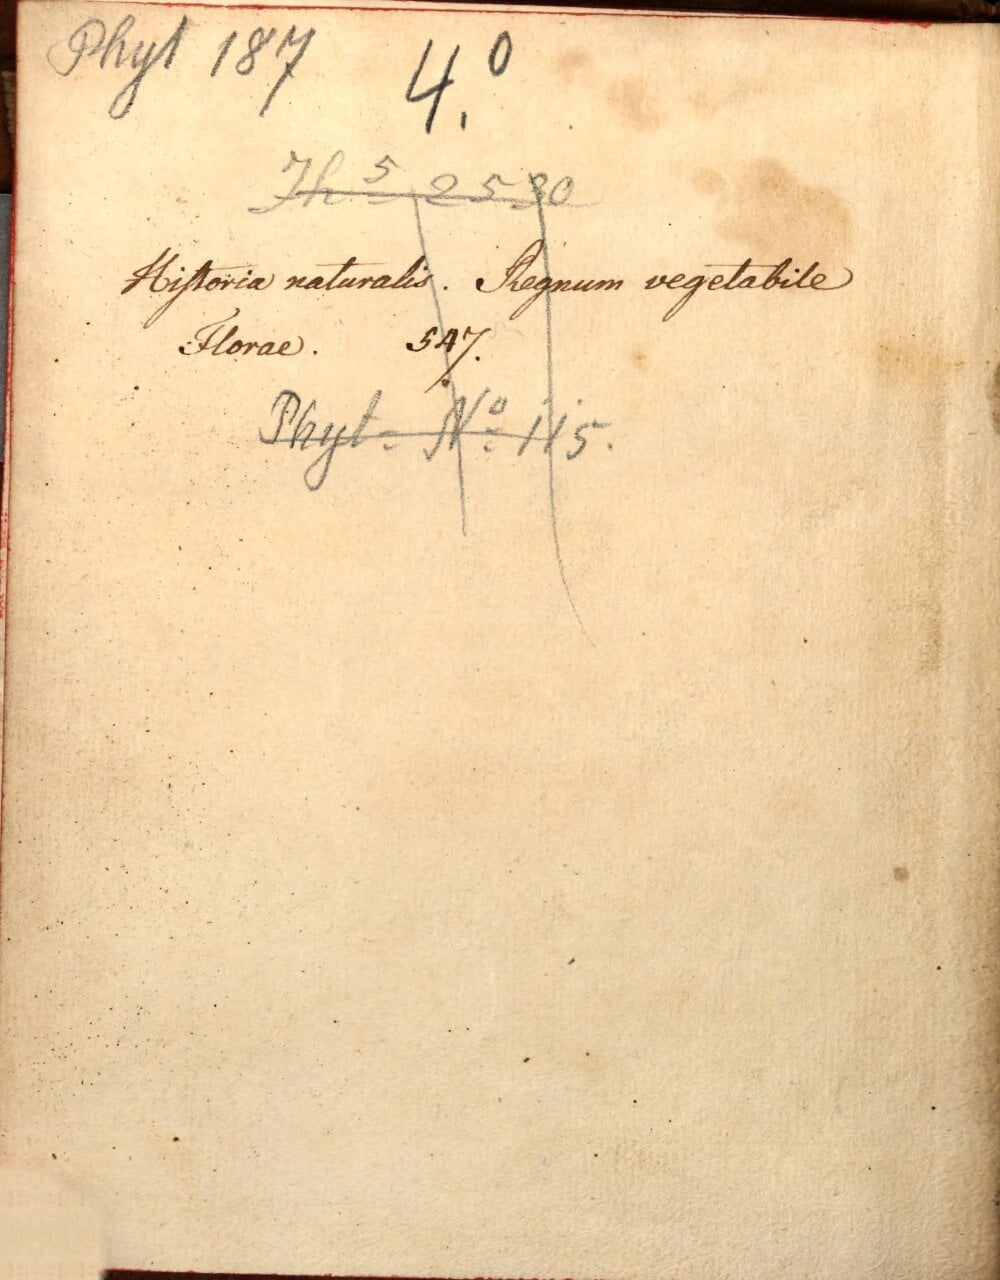 Phyt 187 4.º
Th 5 2530
Hiſtoria naturalis. Regnum vegetabile
Florae. 547.
Phyt. Nº 115.